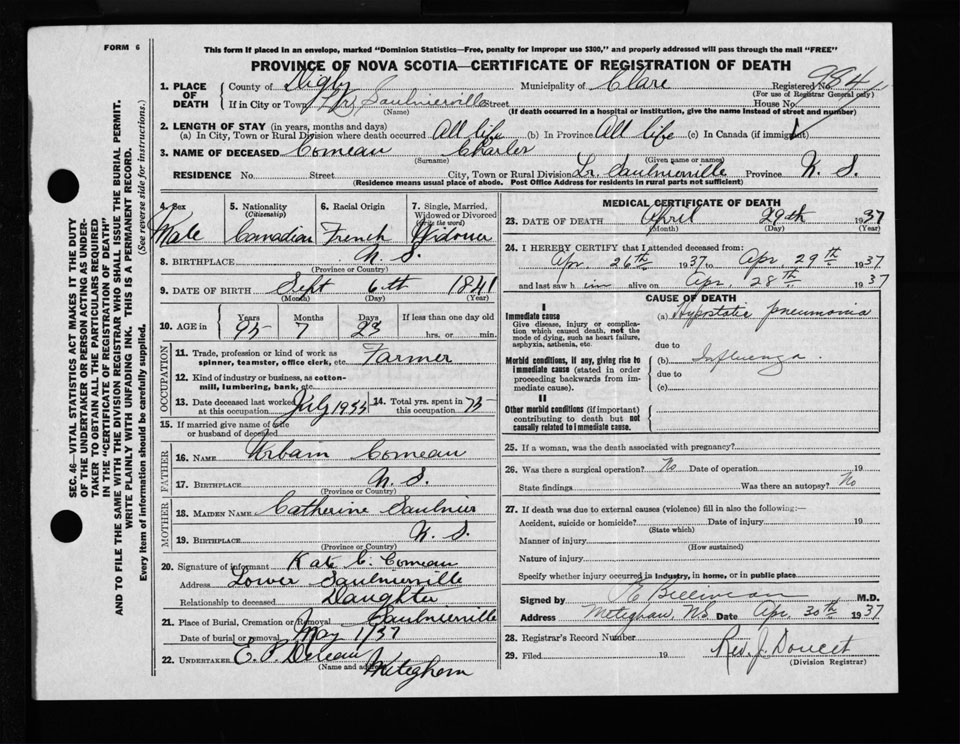 FORM 6
This form if placed in an envelope, marked "Dominion Statistics—Free, penalty for improper use $300," and properly addressed will pass through the mail "FREE"
PROVINCE OF NOVA SCOTIA—CERTIFICATE OF REGISTRATION OF DEATH
1. PLACE OF DEATH
County of Digby Municipality of Clare Registered No. 984
(For use of Registrar General only)
If in City or Town Lr. Saulnierville Street House No.
(Name) (If death occurred in a hospital or institution, give the name instead of street and number)
2. LENGTH OF STAY (in years, months and days)
(a) In City, Town or Rural Division where death occurred All life (b) In Province All life (c) In Canada (if immigrant)
3. NAME OF DECEASED Comeau Charles
(Surname) (Given name or names)
RESIDENCE No. Street City, Town or Rural Division Lr. Saulnierville Province N. S.
(Residence means usual place of abode. Post Office Address for residents in rural parts not sufficient)
4. Sex
Male
5. Nationality
(Citizenship)
Canadian
6. Racial Origin
French
7. Single, Married, Widowed or Divorced
(Write the word)
Widower
8. BIRTHPLACE N. S.
(Province or Country)
9. DATE OF BIRTH Sept 6th 1841
(Month) (Day) (Year)
10. AGE in
Years Months Days If less than one day old
95 7 23 hrs. or min.
OCCUPATION
11. Trade, profession or kind of work as
spinner, teamster, office clerk, etc. Farmer
12. Kind of industry or business, as cotton-
mill, lumbering, bank, etc.
13. Date deceased last worked
at this occupation July 1933
14. Total yrs. spent in
this occupation 75
15. If married give name of wife
or husband of deceased
FATHER
16. NAME Urbain Comeau
17. BIRTHPLACE N. S.
(Province or Country)
MOTHER
18. MAIDEN NAME Catherine Saulnier
19. BIRTHPLACE N. S.
(Province or Country)
20. Signature of informant Kate C. Comeau
Address Lower Saulnierville
Relationship to deceased Daughter
21. Place of Burial, Cremation or Removal Saulnierville
Date of burial or removal May 1/37
22. UNDERTAKER E. P.
(Name and address) Meteghan
MEDICAL CERTIFICATE OF DEATH
23. DATE OF DEATH April 29th 1937
(Month) (Day) (Year)
24. I HEREBY CERTIFY that I attended deceased from:
Apr. 26th 1937 to Apr. 29th 1937
and last saw him alive on Apr. 28th 1937
CAUSE OF DEATH
I
Immediate cause
Give disease, injury or complica-
tion which caused death, not the
mode of dying, such as heart failure,
asphyxia, asthenia, etc.
(a) Hypostatic pneumonia
due to
Morbid conditions, if any, giving rise to
immediate cause (stated in order
proceeding backwards from im-
mediate cause).
(b) Influenza
due to
(c)
II
Other morbid conditions (if important)
contributing to death but not
causally related to immediate cause.
25. If a woman, was the death associated with pregnancy?
26. Was there a surgical operation? No Date of operation 19
State findings Was there an autopsy? No
27. If death was due to external causes (violence) fill in also the following:—
Accident, suicide or homicide? Date of injury 19
(State which)
Manner of injury
(How sustained)
Nature of injury
Specify whether injury occurred in industry, in home, or in public place
Signed by M.D.
Address Meteghan, N.S. Date Apr. 30th 1937
28. Registrar's Record Number
29. Filed 19 Rev. J. Doucet
(Division Registrar)
SEC. 46—VITAL STATISTICS ACT MAKES IT THE DUTY
OF THE UNDERTAKER OR PERSON ACTING AS UNDER-
TAKER TO OBTAIN ALL THE PARTICULARS REQUIRED
IN THE "CERTIFICATE OF REGISTRATION OF DEATH"
AND TO FILE THE SAME WITH THE DIVISION REGISTRAR WHO SHALL ISSUE THE BURIAL PERMIT.
WRITE PLAINLY WITH UNFADING INK. THIS IS A PERMANENT RECORD.
Every item of information should be carefully supplied.
(See reverse side for instructions.)